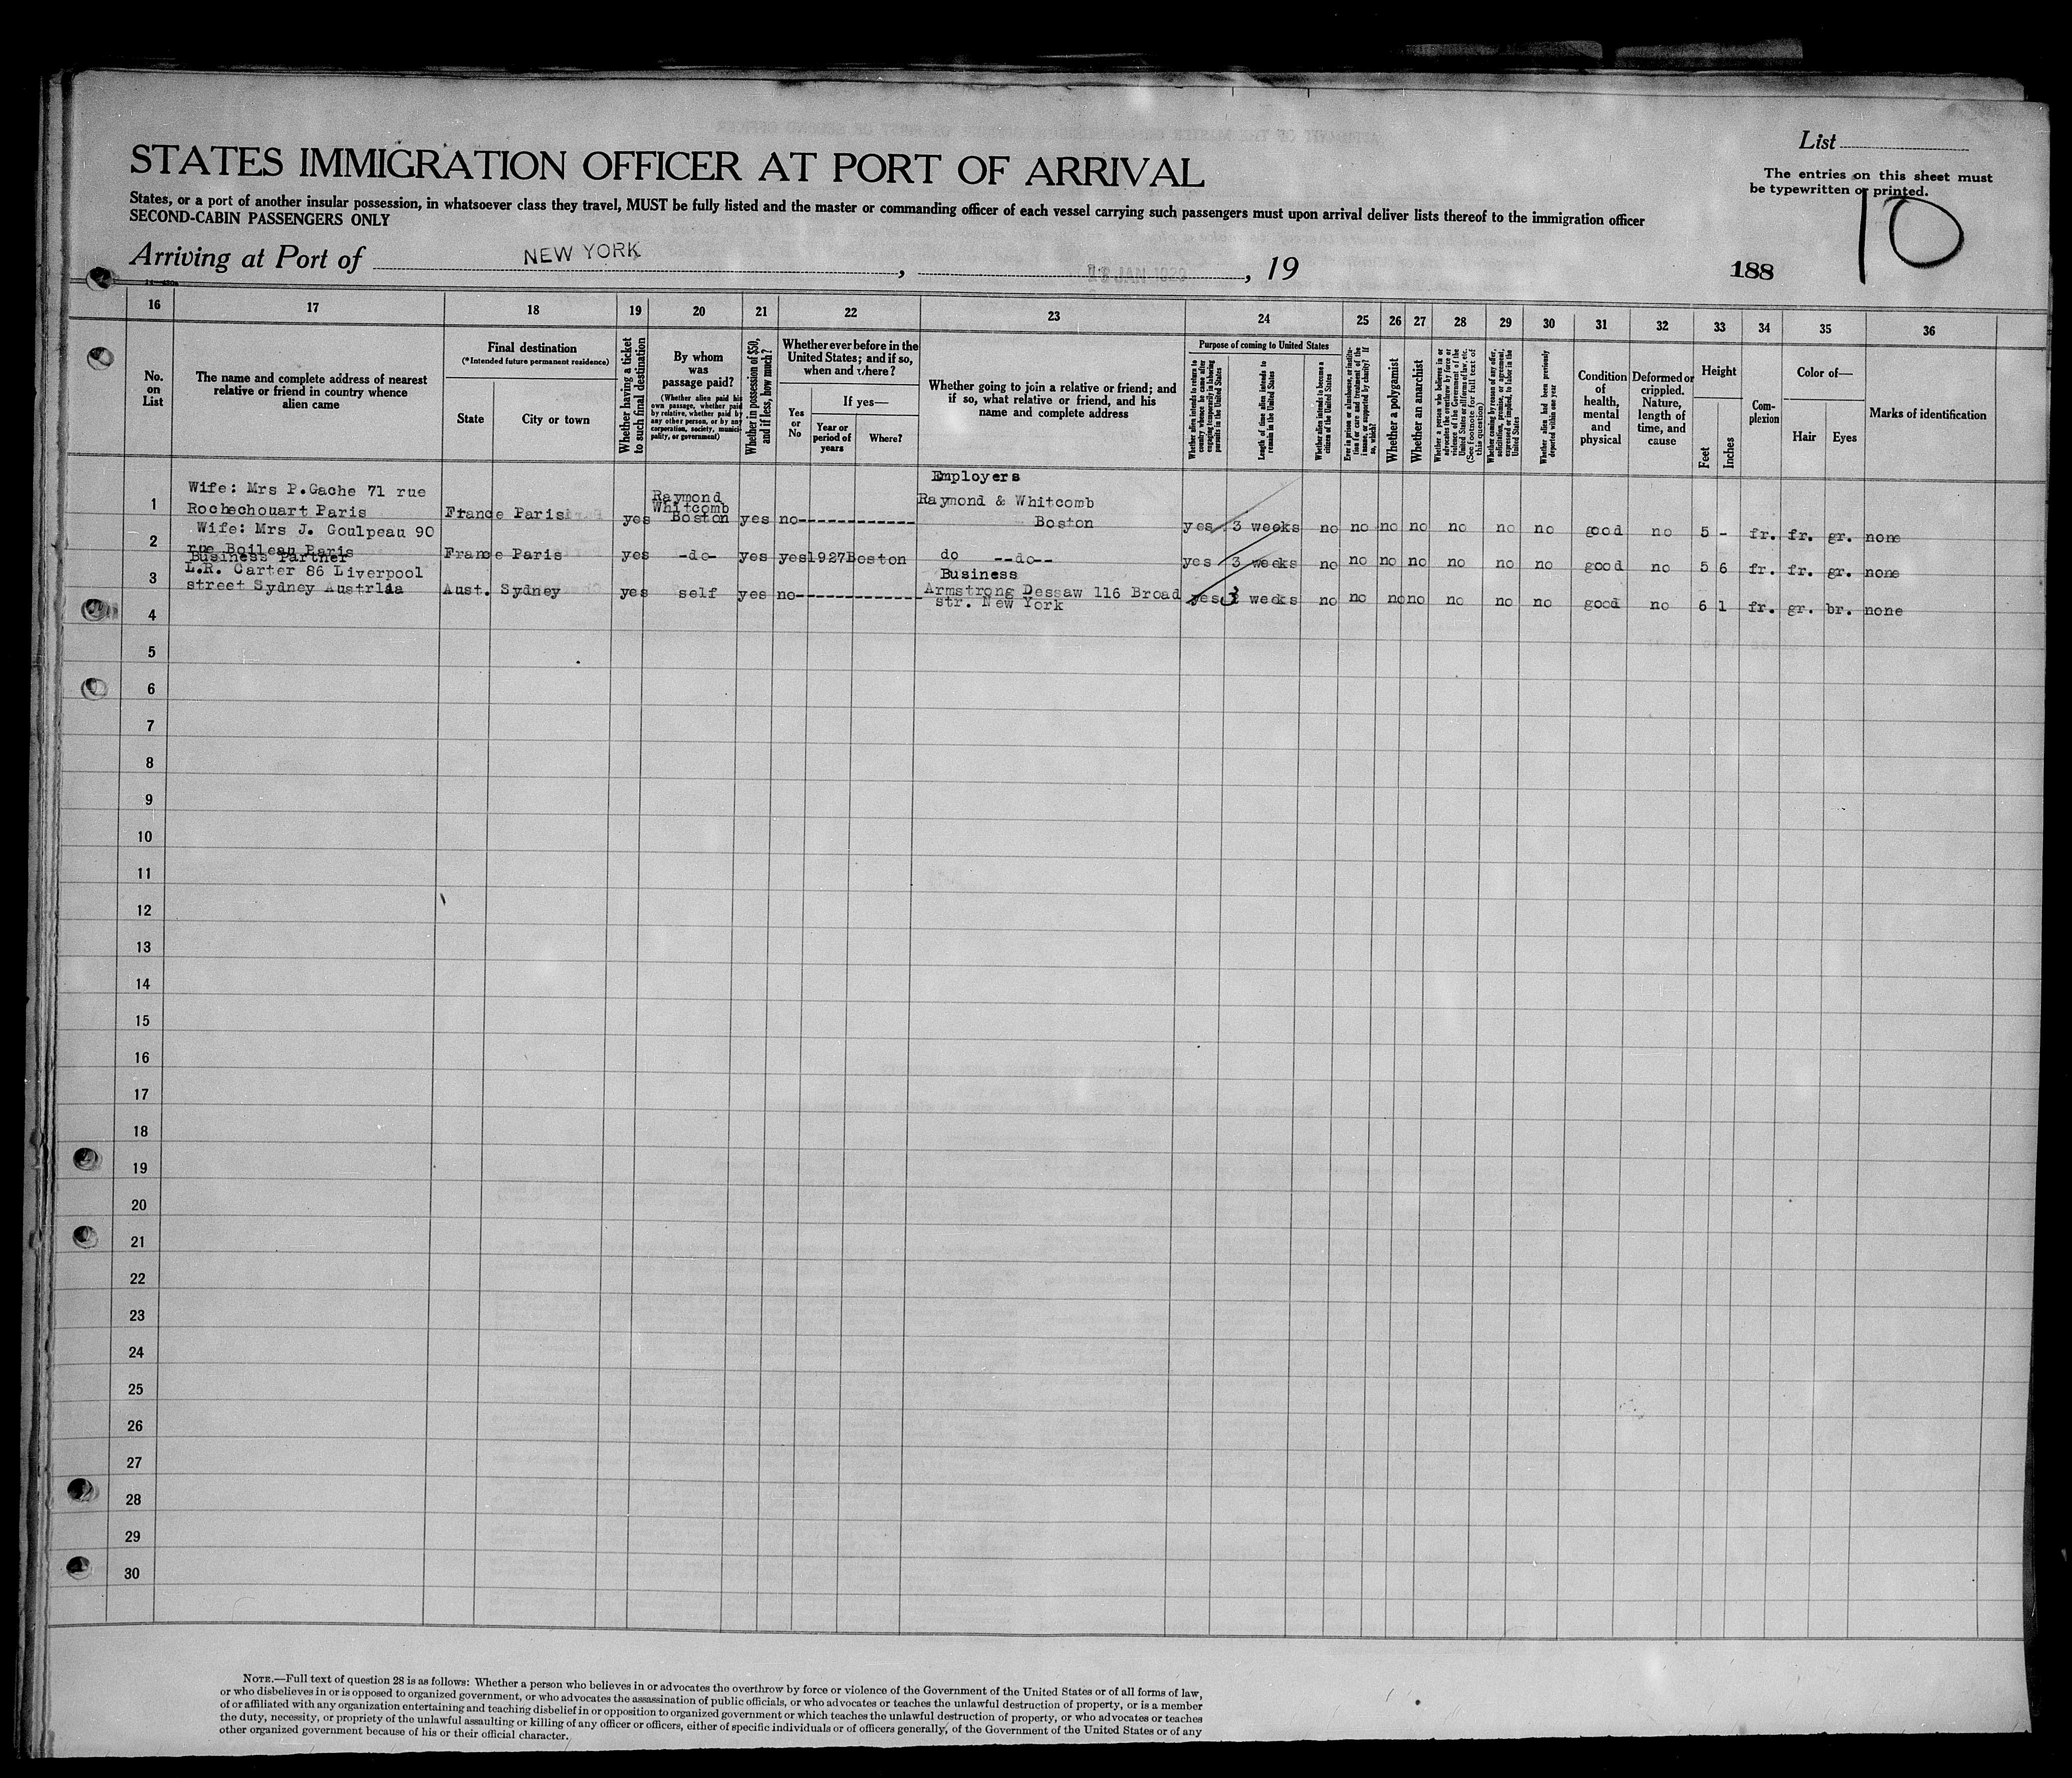 List
The entries on this sheet must
be typewritten or printed.
STATES IMMIGRATION OFFICER AT PORT OF ARRIVAL
States, or a port of another insular possession, in whatsoever class they travel, MUST be fully listed and the master or commanding officer of each vessel carrying such passengers must upon arrival deliver lists thereof to the immigration officer
SECOND-CABIN PASSENGERS ONLY
10
Arriving at Port of NEW YORK, JAN, 19
188
16 17 18 19 20 21 22 23 24 25 26 27 28 29 30 31 32 33 34 35 36
No. on List
The name and complete address of nearest relative or friend in country whence alien came
Final destination
(*Intended future permanent residence)
State
City or town
Whether having a ticket to such final destination
By whom was passage paid?
(Whether alien paid his own passage, whether paid by relative, whether paid by any other person, or by any corporation, society, municipality, or government)
Whether in possession of $50, and if less, how much?
Whether ever before in the United States; and if so, when and where?
Yes or No
If yes—
Year or period of years
Where?
Whether going to join a relative or friend; and if so, what relative or friend, and his name and complete address
Purpose of coming to United States
Whether alien intends to return to country whence he came after engaging temporarily in laboring pursuits in the United States
Length of time alien intends to remain in the United States
Whether alien intends to become a citizen of the United States
Ever in prison or almshouse, or institution for care and treatment of the insane, or supported by charity? If so, which?
Whether a polygamist
Whether an anarchist
Whether a person who believes in or advocates the overthrow by force or violence of the Government of the United States or all forms of law, etc. (See footnote for full text of this question)
Whether coming by reason of any offer, solicitation, promise, or agreement, expressed or implied, to labor in the United States
Whether alien had been previously deported within one year
Condition of health, mental and physical
Deformed or crippled. Nature, length of time, and cause
Height
Feet
Inches
Complexion
Color of—
Hair
Eyes
Marks of identification
Employers
1 Wife: Mrs P.Gache 71 rue Rochechouart Paris France Paris yes Raymond Whitcomb Boston yes no------------ Raymond & Whitcomb Boston yes 3 weeks no no no no no no no good no 5 - fr. fr. gr. none
2 Wife: Mrs J. Goulpeau 90 rue Boileau Paris France Paris yes -do- yes yes 1927 Boston do --do-- yes 3 weeks no no no no no no no good no 5 6 fr. fr. gr. none
3 Business Partner L.R. Carter 86 Liverpool street Sydney Austrlia Aust. Sydney yes self yes no------------ Business Armstrong Dessaw 116 Broad str. New York yes 3 weeks no no no no no no no good no 6 1 fr. gr. br. none
4
5
6
7
8
9
10
11
12
13
14
15
16
17
18
19
20
21
22
23
24
25
26
27
28
29
30
NOTE.—Full text of question 28 is as follows: Whether a person who believes in or advocates the overthrow by force or violence of the Government of the United States or of all forms of law,
or who disbelieves in or is opposed to organized government, or who advocates the assassination of public officials, or who advocates or teaches the unlawful destruction of property, or is a member
of or affiliated with any organization entertaining and teaching disbelief in or opposition to organized government or which teaches the unlawful destruction of property, or who advocates or teaches
the duty, necessity, or propriety of the unlawful assaulting or killing of any officer or officers, either of specific individuals or of officers generally, of the Government of the United States or of any
other organized government because of his or their official character.